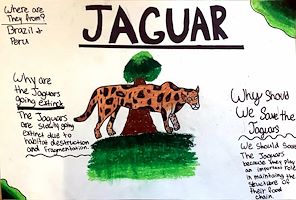 Where are
They from?
Brazil &
Peru
JAGUAR
Why are
the Jaguars
going extinct
The Jaguars
are slowly going
extinct due to
habitat destruction
and fragmentation.
Why Should
We Save the
Jaguars
We should Save
The Jaguars
because they play
an important role
in maintaining the
structure of
their food
chain.